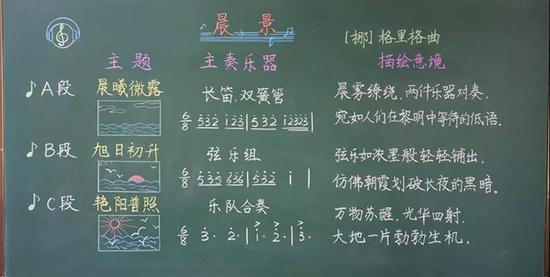 晨景
[挪] 格里格曲
主题 主奏乐器 描绘意境
♪A段 晨曦微露 长笛、双簧管 晨雾缭绕，两件乐器对奏，
宛如人们在黎明中等待的低语。
♪B段 旭日初升 弦乐组 弦乐如浓墨般轻轻铺出，
6/8
仿佛朝霞划破长夜的黑暗。
♪C段 艳阳普照 乐队合奏 万物苏醒，光华四射，
6/8 3· 2· | 1· 2· | 3· 3·
大地一片勃勃生机。